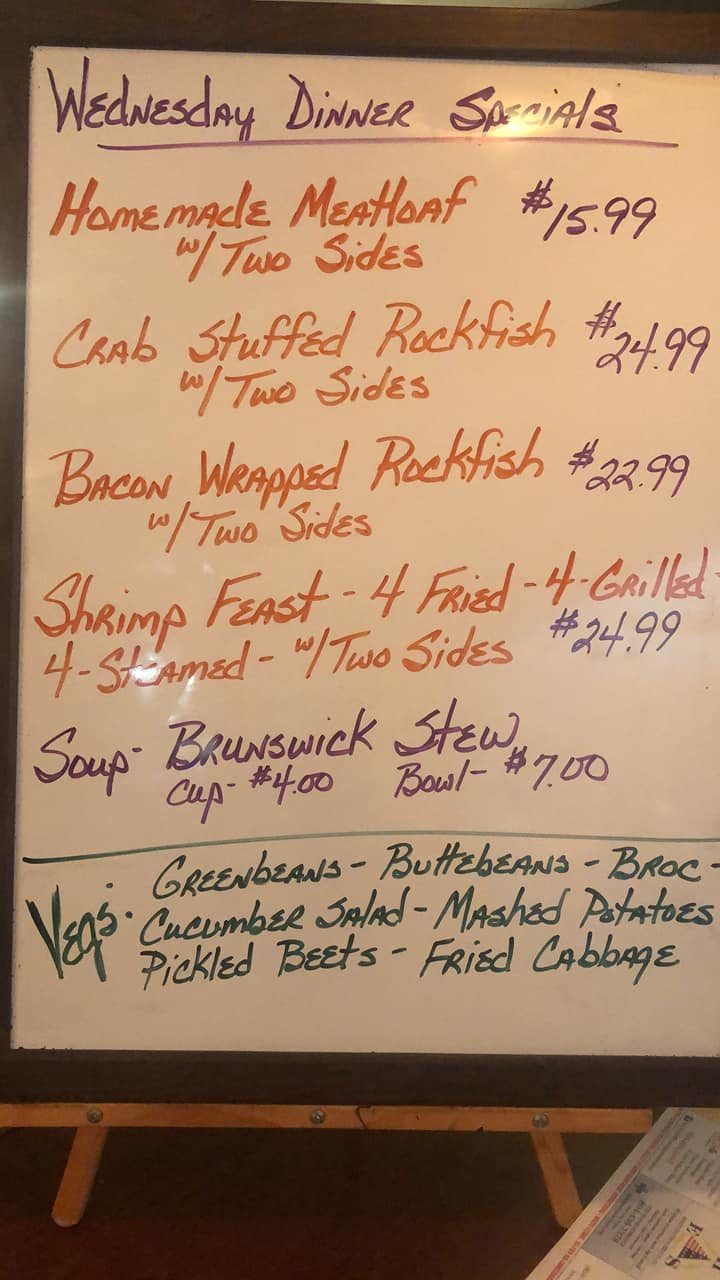 Wednesday Dinner Specials
Homemade Meatloaf $15.99
w/ Two Sides
Crab Stuffed Rockfish $24.99
w/ Two Sides
Bacon Wrapped Rockfish $22.99
w/ Two Sides
Shrimp Feast - 4 Fried - 4 - Grilled -
4 - Steamed - w/ Two Sides $24.99
Soup - Brunswick Stew
Cup - $4.00 Bowl - $7.00
Veg's. Greenbeans - Buttebeans - Broc -
Cucumber Salad - Mashed Potatoes
Pickled Beets - Fried Cabbage